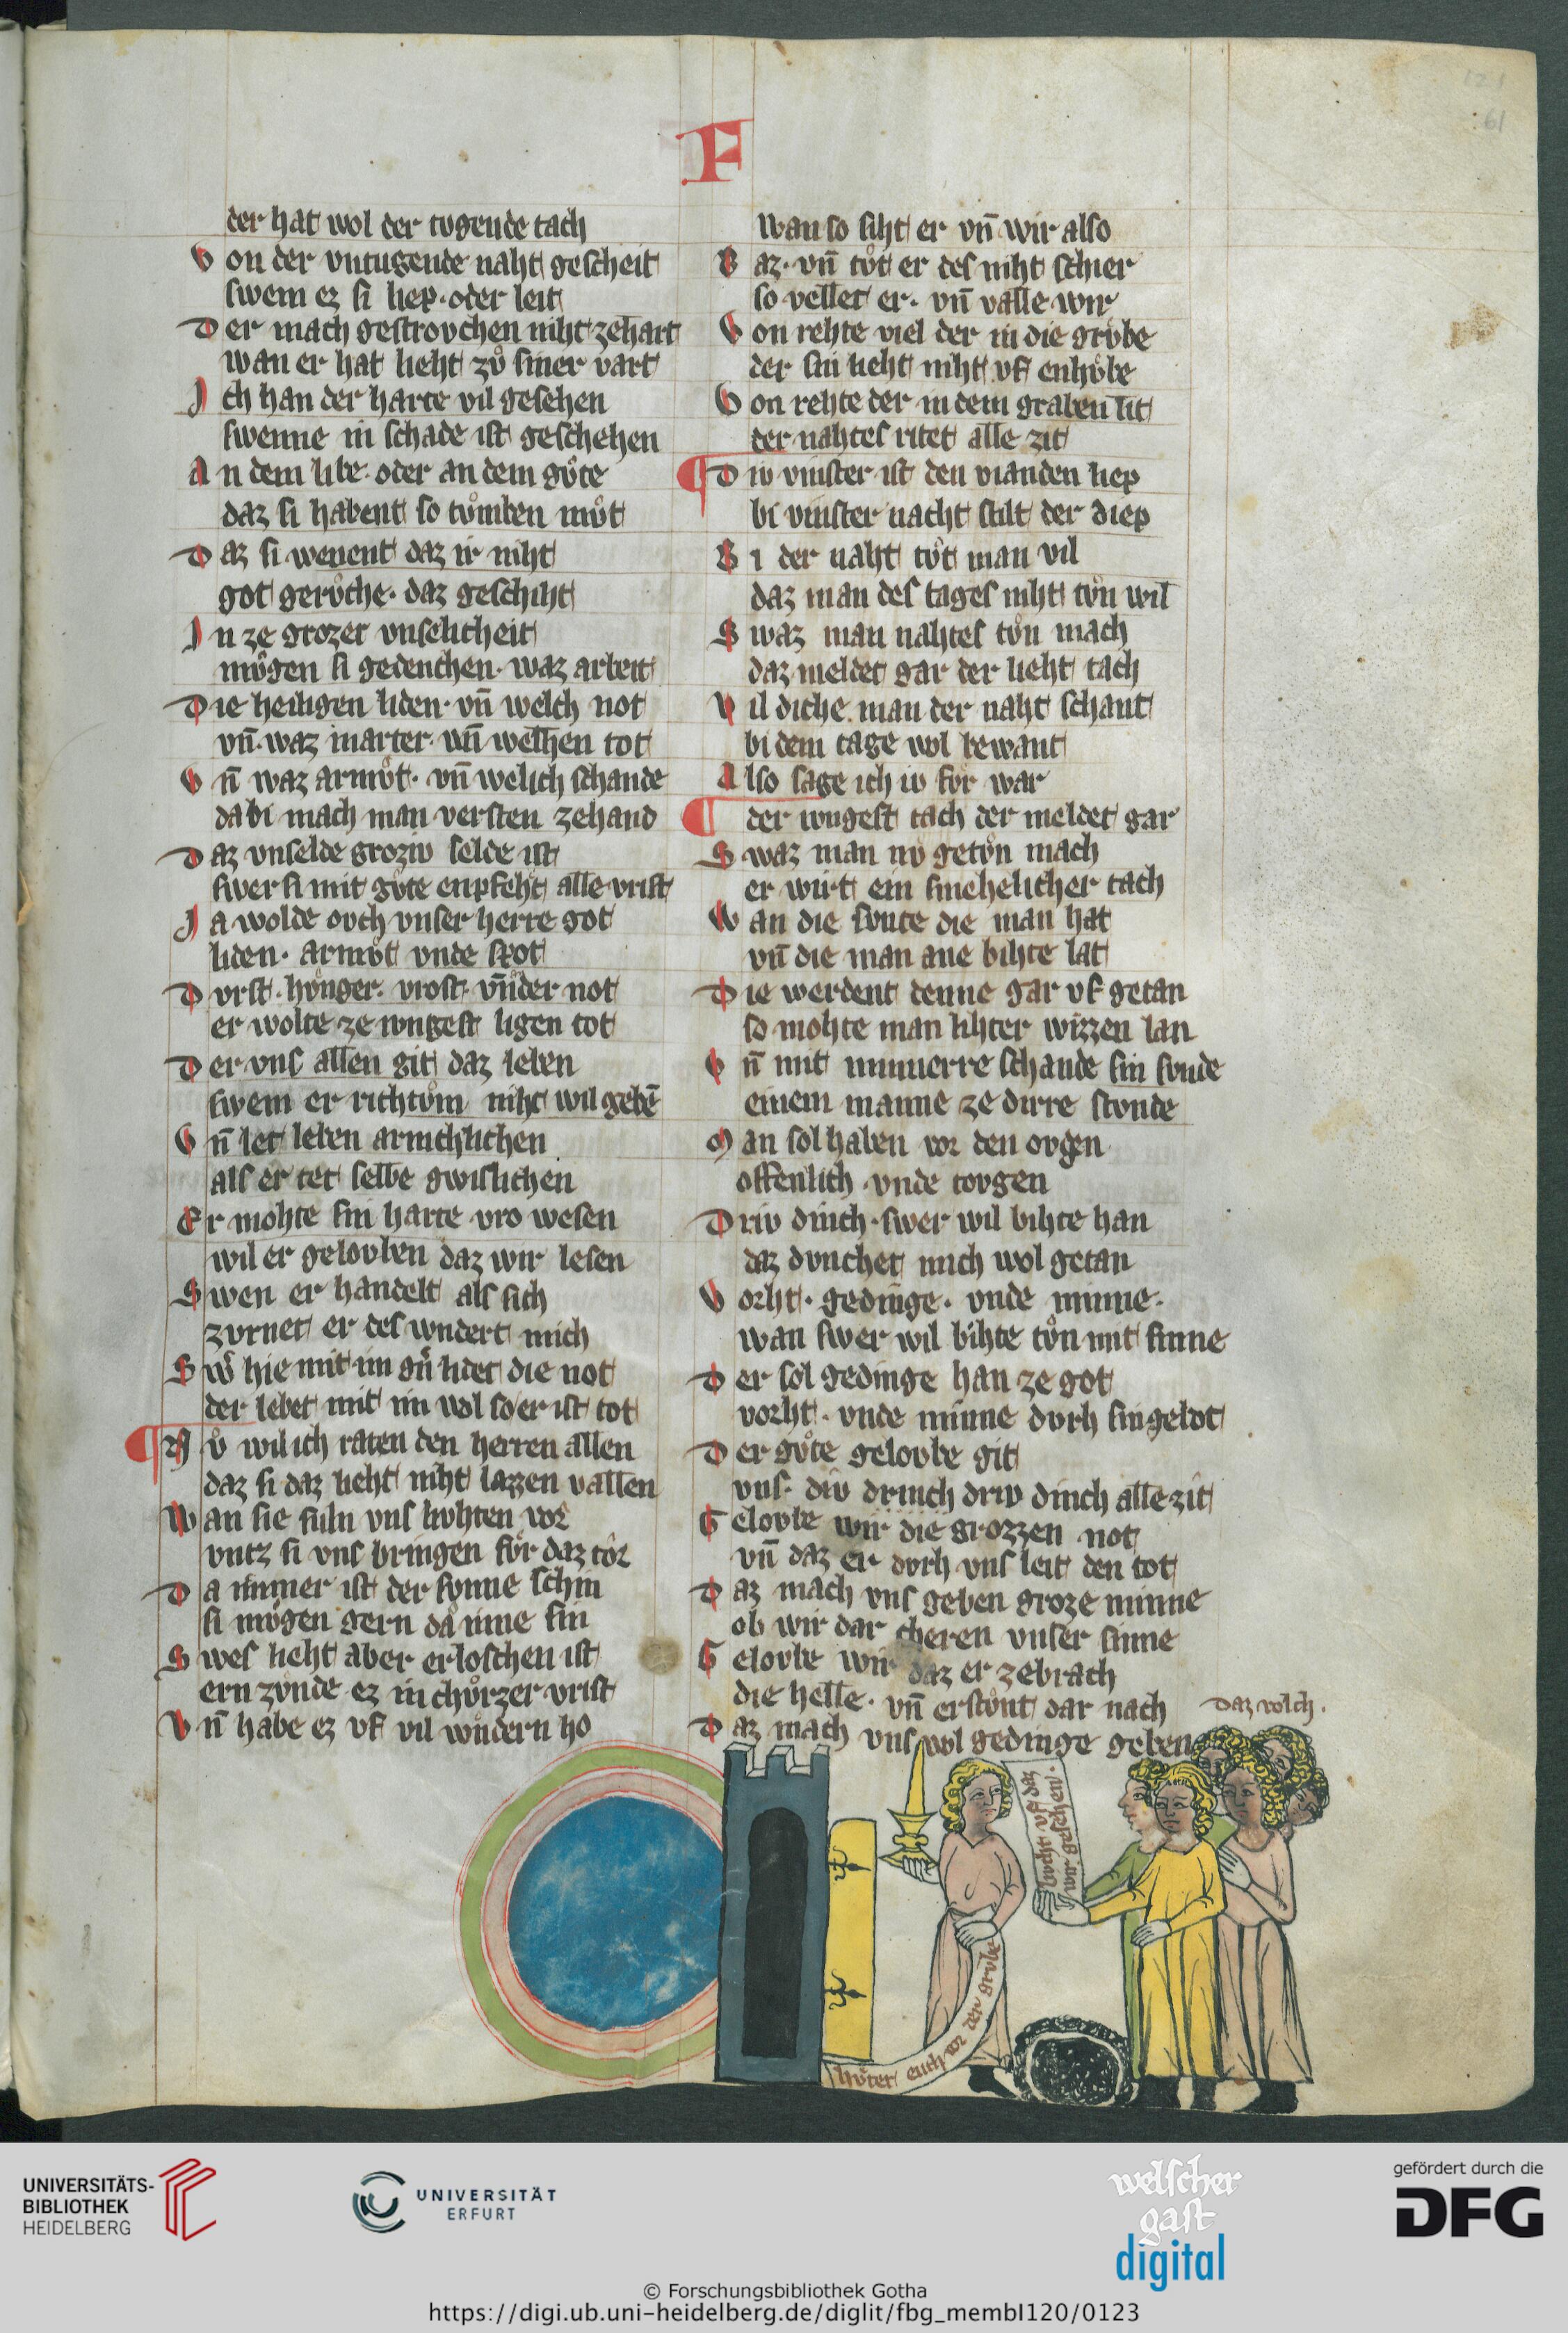 F
der hat wol der tvgende tach
Von der vntugende naht gescheit
swem ez si liep. oder leit
Der mach gestrovchen niht zehart
wan er hat lieht zů siner vart
Ich han der harte vil gesehen
swenne in schade ist geschehen
An dem libe. oder an dem gůte
daz si habent so tůmben můt
Daz si wenent daz ir niht
got gerůche. daz geschiht
In ze grozer vnselicheit
můgen si gedenchen. waz arbeit
Die heiligen liden. vn̄ welch not
vn̄. waz marter. vn̄ welhen tot
Vn̄ waz armůt. vn̄ welich schande
da bi mach man versten zehand
Daz vnselde groziv selde ist
swer si mit gůte enpfeht alle vrist
Ja wolde ovch vnser herre got
liden. armůt vnde spot
Dvrst. hůnger. vrost. vn̄der not
er wolte ze ivngest ligen tot
Der vns allen git daz leben
swem er richtům niht wil gebē
Vn̄ let leben armchlichen
als er tet selbe gwislichen
Er mohte sin harte vro wesen
wil er gelovben daz wir lesen
Swen er handelt als sich
zvrnet er des wndert mich
Sw hie mit im lidet die not
der lebet mit im wol so er ist tot
Nů wil ich raten den herren allen
daz si daz lieht niht lazzen vallen
Wan sie suln vns livhten vor
vntz si vns bringen fůr daz tor
Da immer ist der svnne schin
si můgen gern da inne sin
Swes lieht aber erloschen ist
ern zůnde ez in chůrzer vrist
Vn̄ habe ez vf vil wndern ho
Wan so siht er vn̄ wir also
Baz. vn̄ tůt er des niht schier
so vellet er. vn̄ valle wir
Von rehte viel der in die grůbe
der sin lieht niht vf enhůbe
Von rehte der in dem graben lit
der nahtes ritet alle zit
Div vinster ist den vianden liep
bi vinster nacht stilt der diep
Bi der naht tůt man vil
daz man des tages niht tůn wil
Swaz man nahtes tůn mach
daz meldet gar der lieht tach
Vil diche man der naht schant
bi dem tage wol bewant
Also sage ich iv fůr war
der ivngest tach der meldet gar
Swaz man nv getůn mach
er wirt ein smehelicher tach
Wan die svnte die man hat
vn̄ die man ane bihte lat
Die werdent denne gar vf getan
so mohte man lihter wizzen lan
Vn̄ mit minnerre schande sin svnde
einem manne ze dirre stvnde
Man sol haben vor den ovgen
offenlich vnde tovgen
Driv dinch. swer wil bihte han
daz dvnchet mich wol getan
Vorht. gedinge. vnde minne.
wan swer wil bihte tůn mit sinne
Der sol gedinge han ze got
vorht. vnde minne dvrh sin gebot
Der gůte gelovbe git
vns. div drinch driv dinch alle zit
Gelovbe wir die grozzen not
vn̄ daz er dvrh vns leit den tot
Daz mach vns geben groze minne
ob wir dar cheren vnser sinne
Gelovbe wir daz er zebrach
die helle. vn̄ erstůnt dar nach
Daz mach vns wol gedinge geben
Daz volch.
livcht vf daz
wir gesehen.
Hůtet euch vor der grvbe
UNIVERSITÄTS-
BIBLIOTHEK
HEIDELBERG
UNIVERSITÄT
ERFURT
welscher
gast
digital
gefördert durch die
DFG
© Forschungsbibliothek Gotha
https://digi.ub.uni-heidelberg.de/diglit/fbg_membI120/0123